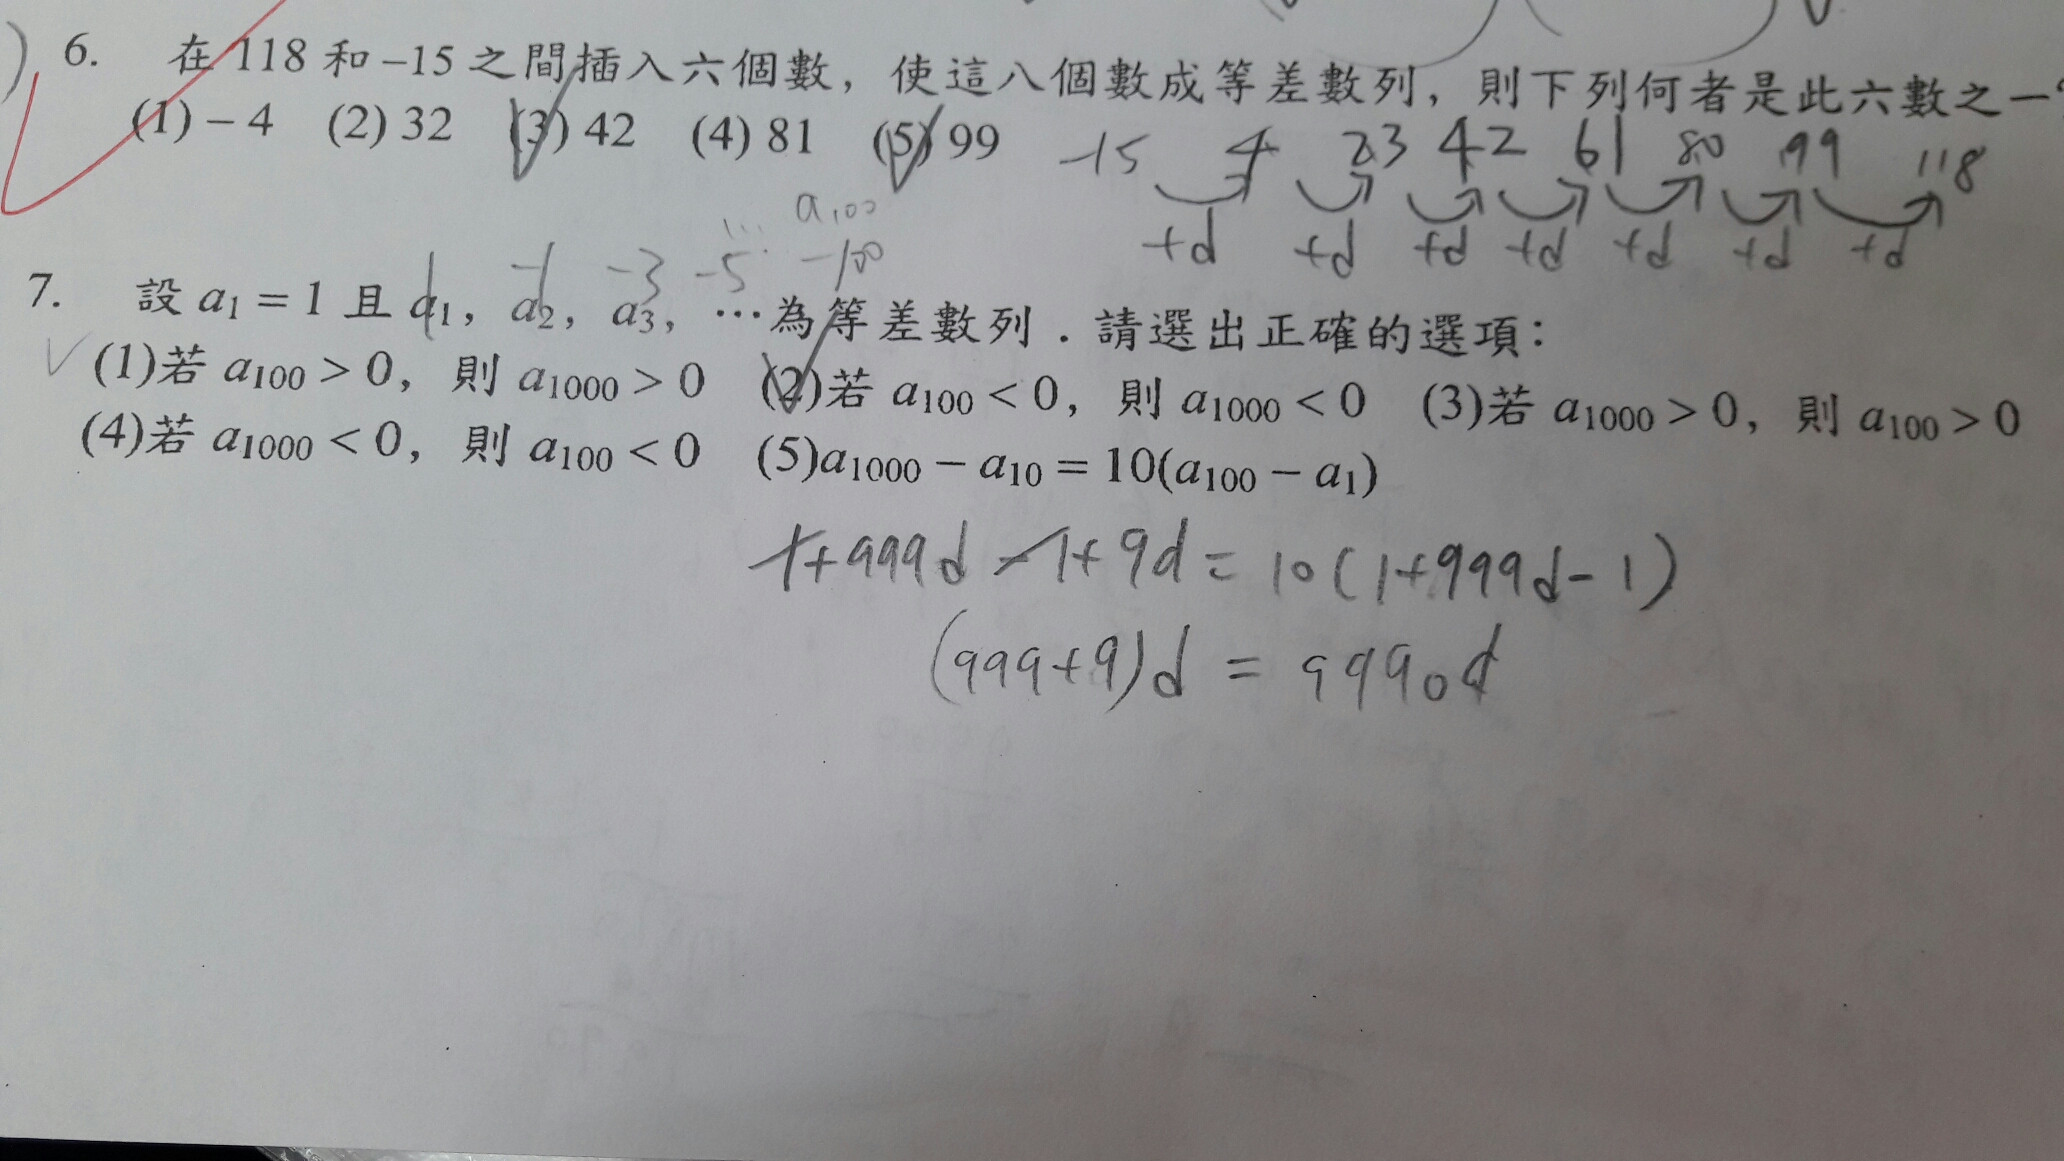 6. 在 118 和 –15 之間插入六個數，使這八個數成等差數列，則下列何者是此六數之一
(1) – 4 (2) 32 (3) 42 (4) 81 (5) 99
-15 4 23 42 61 80 99 118
+d +d +d +d +d +d +d
a₁₀₀
1 -1 -3 -5 ... -100
7. 設 a₁ = 1 且 a₁，a₂，a₃，…為等差數列．請選出正確的選項：
(1)若 a₁₀₀ > 0，則 a₁₀₀₀ > 0 (2)若 a₁₀₀ < 0，則 a₁₀₀₀ < 0 (3)若 a₁₀₀₀ > 0，則 a₁₀₀ > 0
(4)若 a₁₀₀₀ < 0，則 a₁₀₀ < 0 (5)a₁₀₀₀ – a₁₀ = 10(a₁₀₀ – a₁)
1+999d -1+9d = 10(1+999d-1)
(999+9)d = 9990d